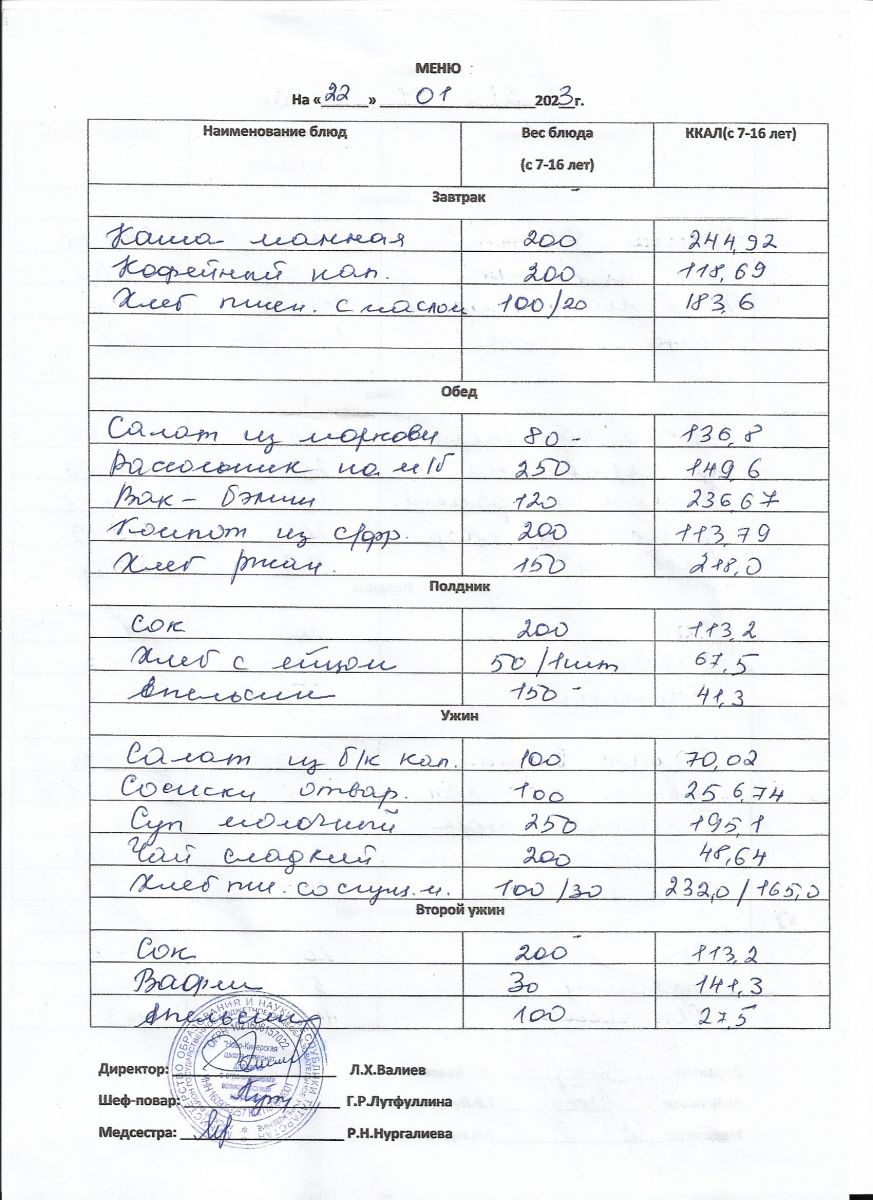 МЕНЮ
На «22» 01 2023г.
Наименование блюд Вес блюда (с 7-16 лет) ККАЛ(с 7-16 лет)
Завтрак
Каша манная 200 244,92
Кофейный нап. 200 118,69
Хлеб пшен. с маслом 100/20 183,6
Обед
Салат из моркови 80- 136,8
Рассольник на м/б 250 149,6
Вак-бэлиш 120 236,67
Компот из с/фр. 200 113,79
Хлеб ржан. 150 218,0
Полдник
Сок 200 113,2
Хлеб с яйцом 50/1шт 67,5
Апельсин 150 41,3
Ужин
Салат из б/к кап. 100 70,02
Сосиски отвар. 100 256,74
Суп молочный 250 195,1
Чай сладкий 200 48,64
Хлеб пш. со сгущ.м. 100/30 232,0/165,0
Второй ужин
Сок 200 113,2
Вафли 30 141,3
Апельсин 100 27,5
Директор: Л.Х.Валиев
Шеф-повар: Г.Р.Лутфуллина
Медсестра: Р.Н.Нургалиева